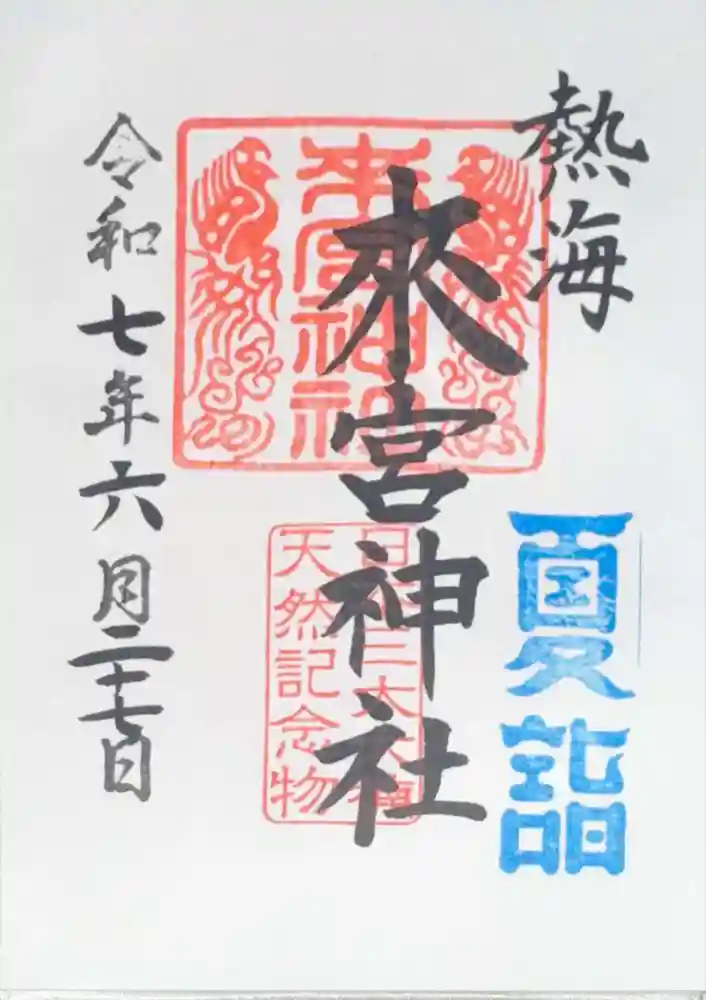 熱海
夏詣
來宮神社
来宮神社
天然記念物
令和七年六月二十七日